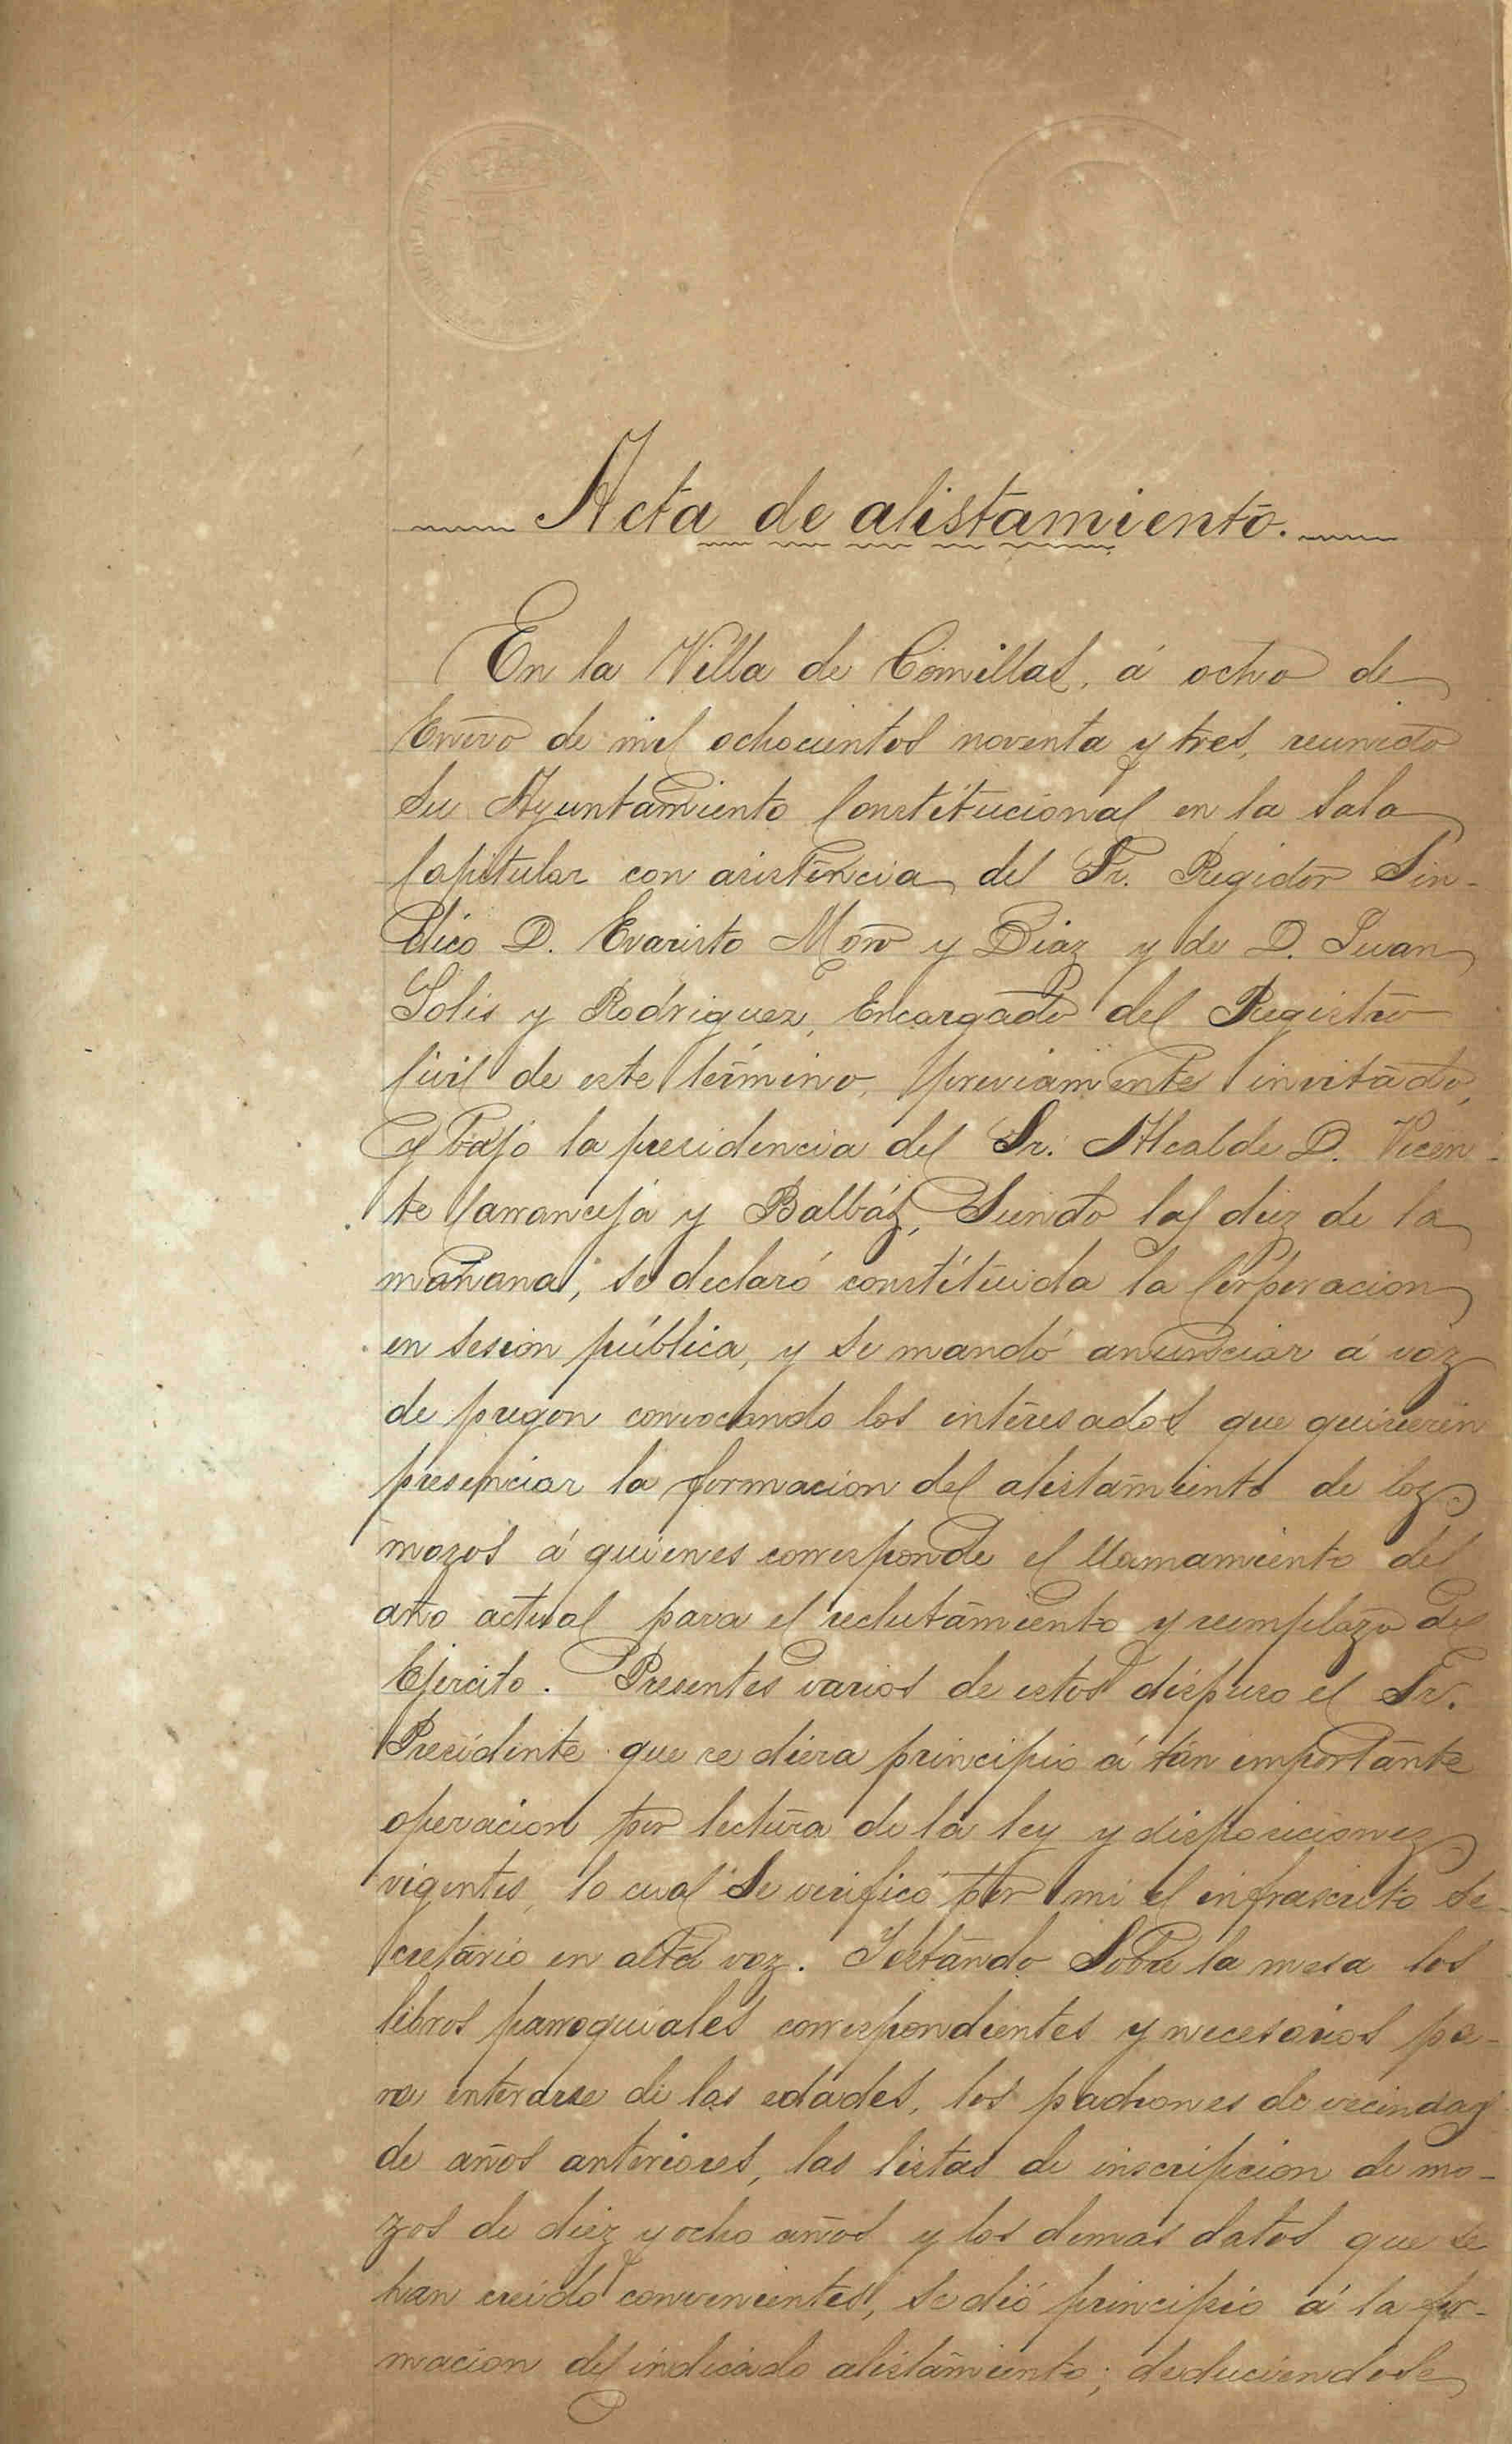 Acta de alistamiento.
En la Villa de Comillas, á ocho de
Enero de mil ochocientos noventa y tres, reunido
su Ayuntamiento Constitucional en la Sala
Capitular con asistencia del Sr. Regidor Sín-
dico D. Evaristo Moro y Diaz y de D. Juan
Solis y Rodriguez, Encargado del Registro
Civil de este término, previamente invitado,
y bajo la presidencia del Sr. Alcalde D. Vicen-
te Carranceja y Balbáz, Siendo las diez de la
mañana, se declaró constituida la Corporacion
en sesion pública, y se mandó anunciar á voz
de pregon convocando los interesados que quisieren
presenciar la formacion del alistamiento de los
mozos á quienes corresponde el llamamiento del
año actual para el reclutamiento y reemplazo del
Ejercito. Presentes varios de estos dispuso el Sr.
Presidente que se diera principio á tan importante
operacion por lectura de la ley y disposiciones
vigentes, lo cual se verificó por mi el infrascrito Se-
cretario en alta voz. Y estando Sobre la mesa los
libros parroquiales correspondientes y necesarios pa-
ra enterarse de las edades, los padrones de vecindad
de años anteriores, las listas de inscripcion de mo-
zos de diez y ocho años y los demas datos que se
han creido convenientes, se dió principio á la for-
macion del indicado alistamiento; deduciendose